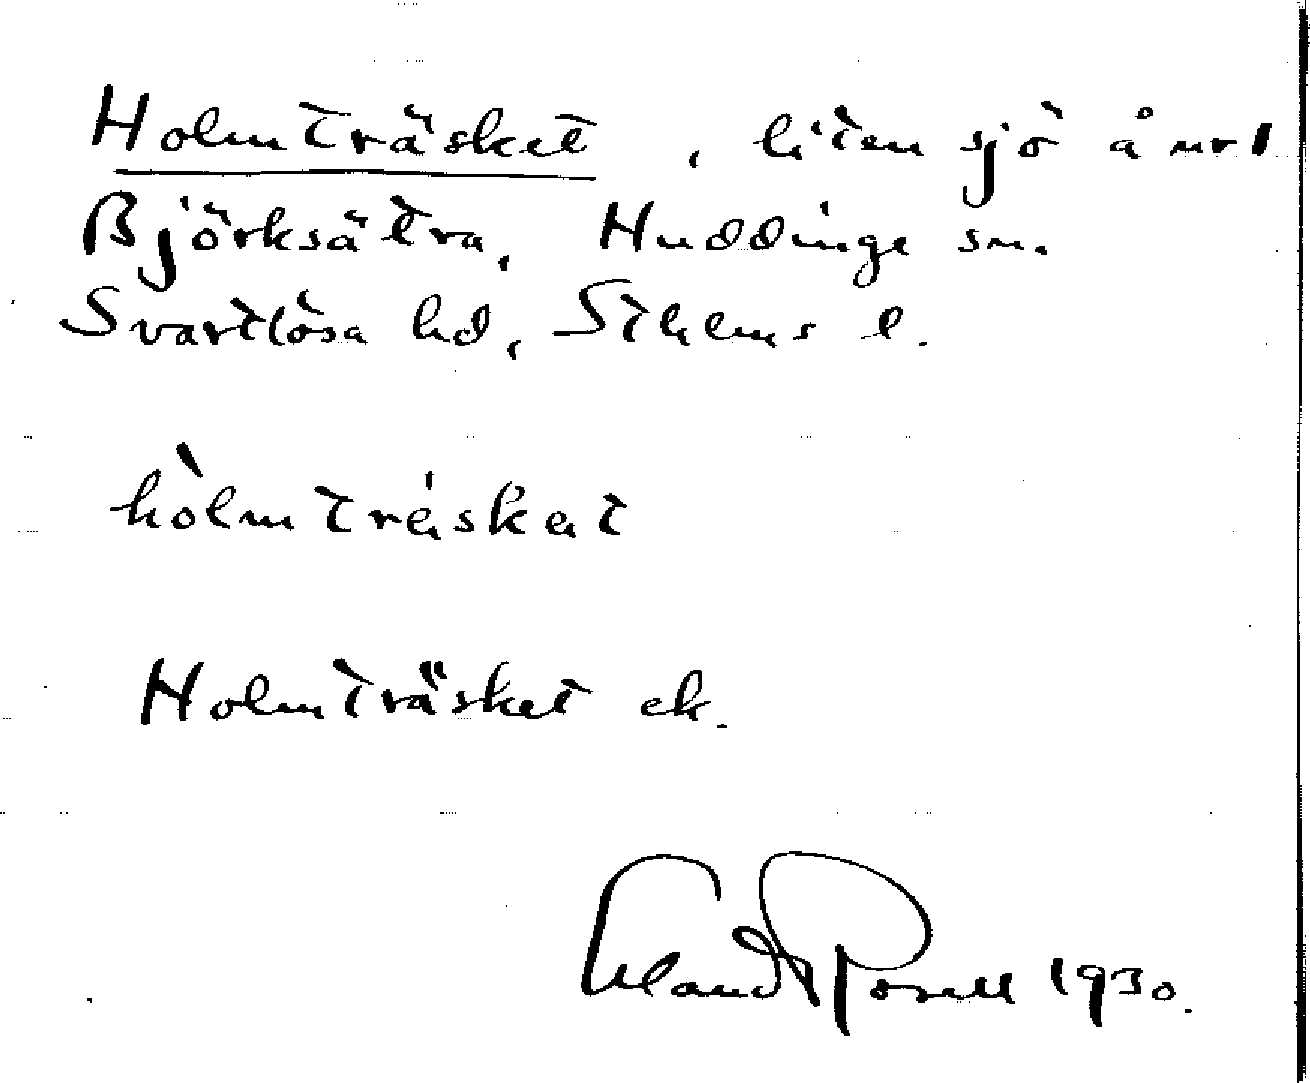 Holmträsket, liten sjö å nr 1
Björksätra, Huddinge sn.
Svartlösa hd, Sthlms l.
hòlmträ́skat
Holmträsket ek.
Erland Rosell 1930.